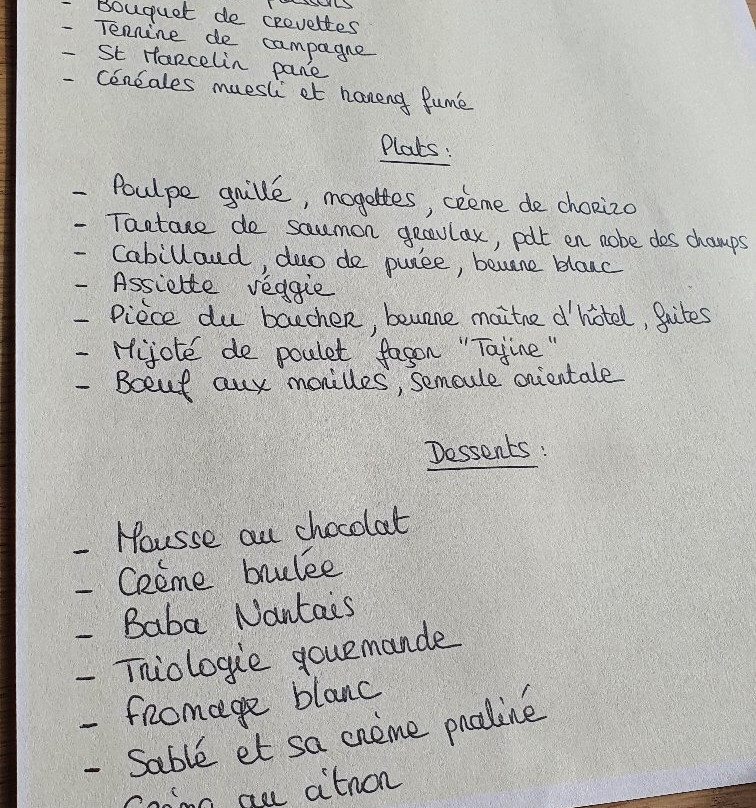 - Bouquet de crevettes
- Terrine de campagne
- St Marcelin pané
- Céréales muesli et hareng fumé
Plats :
- Poulpe grillé, mogettes, crème de chorizo
- Tartare de saumon gravlax, pdt en robe des champs
- Cabillaud, duo de purée, beurre blanc
- Assiette véggie
- Pièce du boucher, beurre maître d'hôtel, frites
- Mijoté de poulet façon "Tajine"
- Bœuf aux morilles, semoule orientale
Desserts :
- Mousse au chocolat
- Crème brulée
- Baba Nantais
- Triologie gourmande
- Fromage blanc
- Sablé et sa crème praliné
au citron